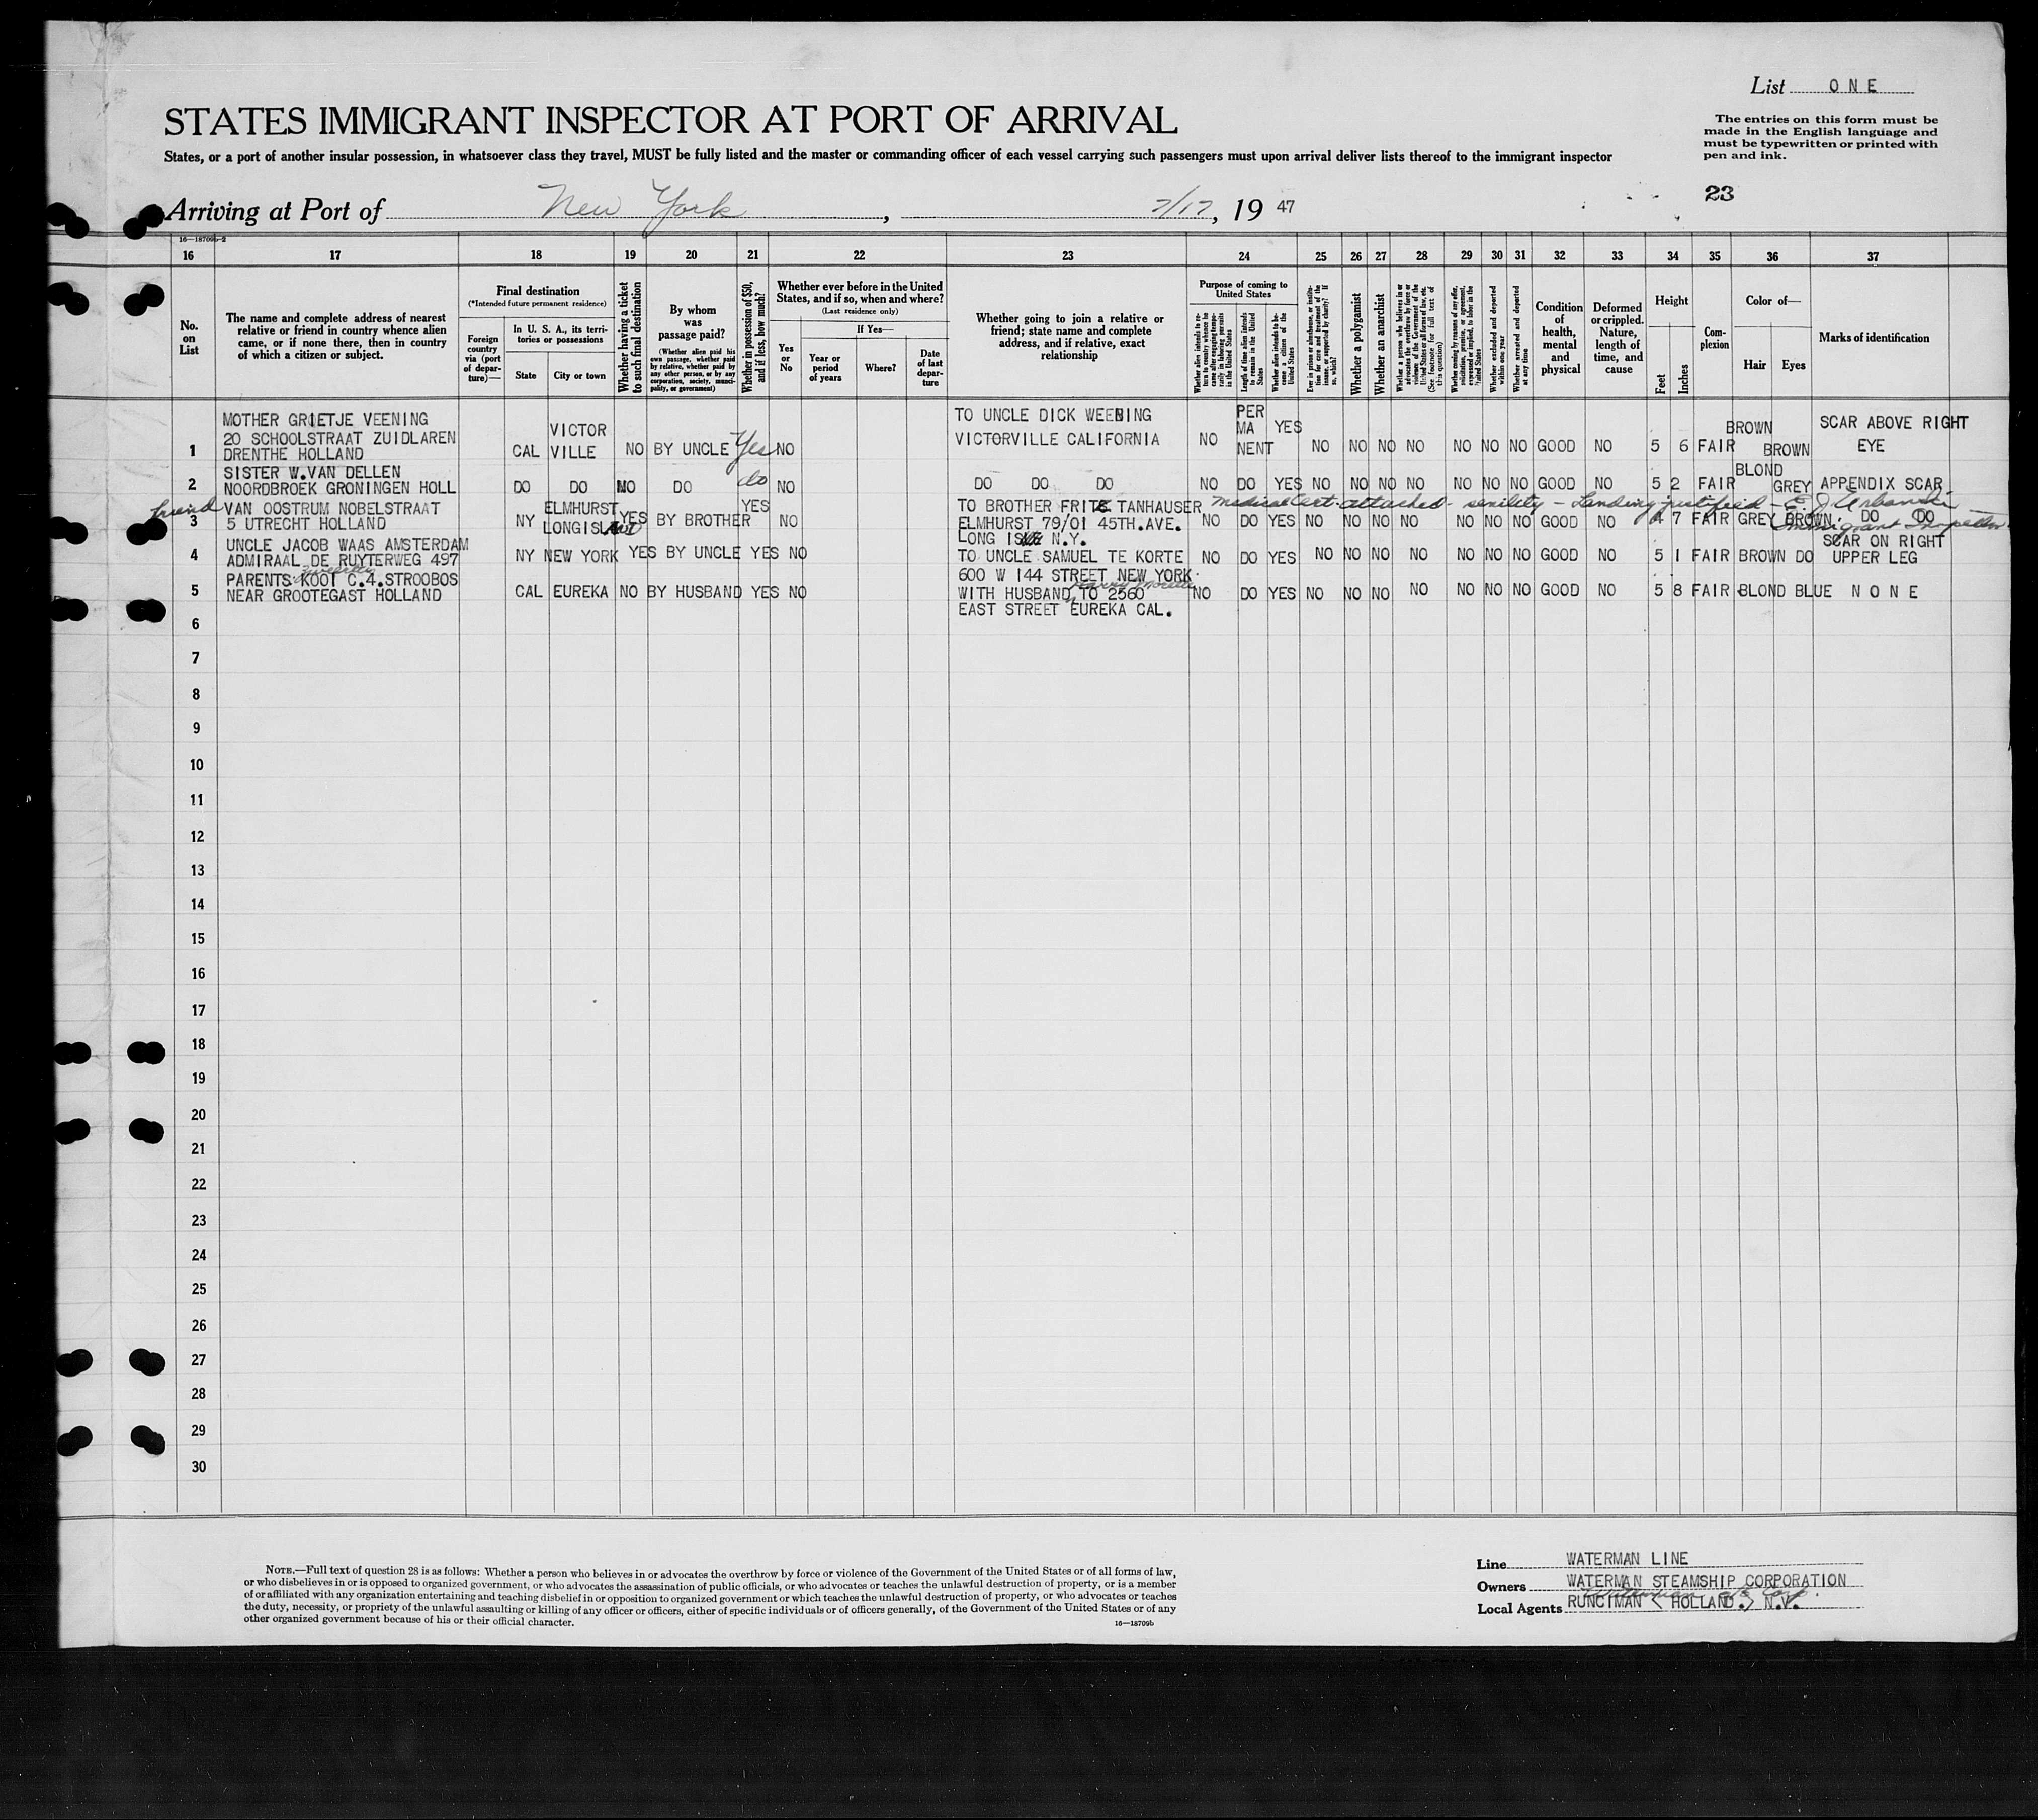 List ONE
STATES IMMIGRANT INSPECTOR AT PORT OF ARRIVAL
The entries on this form must be
made in the English language and
must be typewritten or printed with
pen and ink.
States, or a port of another insular possession, in whatsoever class they travel, MUST be fully listed and the master or commanding officer of each vessel carrying such passengers must upon arrival deliver lists thereof to the immigrant inspector
23
Arriving at Port of New York, 7/17, 19 47
16—18709b-2
16 17 18 19 20 21 22 23 24 25 26 27 28 29 30 31 32 33 34 35 36 37
No.
on
List
The name and complete address of nearest
relative or friend in country whence alien
came, or if none there, then in country
of which a citizen or subject.
Final destination
(*Intended future permanent residence)
Foreign
country
via (port
of depar-
ture)—
In U. S. A., its terri-
tories or possessions
State City or town
Whether having a ticket
to such final destination
By whom
was
passage paid?
(Whether alien paid his
own passage, whether paid
by relative, whether paid by
any other person, or by any
corporation, society, munici-
pality, or government)
Whether in possession of $50,
and if less, how much?
Whether ever before in the United
States, and if so, when and where?
(Last residence only)
Yes
or
No
If Yes—
Year or
period
of years
Where?
Date
of last
depar-
ture
Whether going to join a relative or
friend; state name and complete
address, and if relative, exact
relationship
Purpose of coming to
United States
Whether alien intends to re-
turn to country whence he
came after engaging tempo-
rarily in laboring pursuits
in the United States
Length of time alien intends
to remain in the United
States
Whether alien intends to be-
come a citizen of the
United States
Ever in prison or almshouse, or institu-
tion for care and treatment of the
insane, or supported by charity? If
so, which?
Whether a polygamist
Whether an anarchist
Whether a person who believes in or
advocates the overthrow by force or
violence of the Government of the
United States or all forms of law, etc.
(See footnote for full text of
this question)
Whether coming by reasons of any offer,
solicitation, promise, or agreement,
expressed or implied, to labor in the
United States
Whether excluded and deported
within one year
Whether arrested and deported
at any time
Condition
of
health,
mental
and
physical
Deformed
or crippled.
Nature,
length of
time, and
cause
Height
Feet Inches
Com-
plexion
Color of—
Hair Eyes
Marks of identification
MOTHER GRIETJE VEENING
20 SCHOOLSTRAAT ZUIDLAREN
DRENTHE HOLLAND
1 CAL VICTOR
VILLE NO BY UNCLE Yes NO
TO UNCLE DICK WEENING
VICTORVILLE CALIFORNIA
NO PER
MA
NENT YES NO NO NO NO NO NO NO GOOD NO 5 6 FAIR BROWN BROWN SCAR ABOVE RIGHT
EYE
SISTER W.VAN DELLEN
2 NOORDBROEK GRONINGEN HOLL DO DO NO DO do NO DO DO DO NO DO YES NO NO NO NO NO NO NO GOOD NO 5 2 FAIR BLOND GREY APPENDIX SCAR
Medical Cert. attached - senility - Landing justified - E. J.
Immigrant Inspector
friend VAN OOSTRUM NOBELSTRAAT
3 5 UTRECHT HOLLAND NY ELMHURST
LONG YES BY BROTHER YES NO
TO BROTHER TANHAUSER
ELMHURST 79/01 45TH.AVE.
LONG N.Y.
NO DO YES NO NO NO NO NO NO NO GOOD NO 4 7 FAIR GREY BROWN DO DO
UNCLE JACOB WAAS AMSTERDAM
4 ADMIRAAL DE RUYTERWEG 497 NY NEW YORK YES BY UNCLE YES NO
TO UNCLE SAMUEL TE KORTE
600 W 144 STREET NEW YORK
NO DO YES NO NO NO NO NO NO NO GOOD NO 5 1 FAIR BROWN DO SCAR ON RIGHT
UPPER LEG
PARENTS KOOI C.4.STROOBOS
5 NEAR GROOTEGAST HOLLAND CAL EUREKA NO BY HUSBAND YES NO
WITH HUSBAND TO 2560
EAST STREET EUREKA CAL.
NO DO YES NO NO NO NO NO NO NO GOOD NO 5 8 FAIR BLOND BLUE NONE
6
7
8
9
10
11
12
13
14
15
16
17
18
19
20
21
22
23
24
25
26
27
28
29
30
NOTE.—Full text of question 28 is as follows: Whether a person who believes in or advocates the overthrow by force or violence of the Government of the United States or of all forms of law,
or who disbelieves in or is opposed to organized government, or who advocates the assassination of public officials, or who advocates or teaches the unlawful destruction of property, or is a member
of or affiliated with any organization entertaining and teaching disbelief in or opposition to organized government or which teaches the unlawful destruction of property, or who advocates or teaches
the duty, necessity, or propriety of the unlawful assaulting or killing of any officer or officers, either of specific individuals or of officers generally, of the Government of the United States or of any
other organized government because of his or their official character.
16—18709b
Line WATERMAN LINE
Owners WATERMAN STEAMSHIP CORPORATION
Local Agents RUNCIMAN < HOLLAND.> N.V.